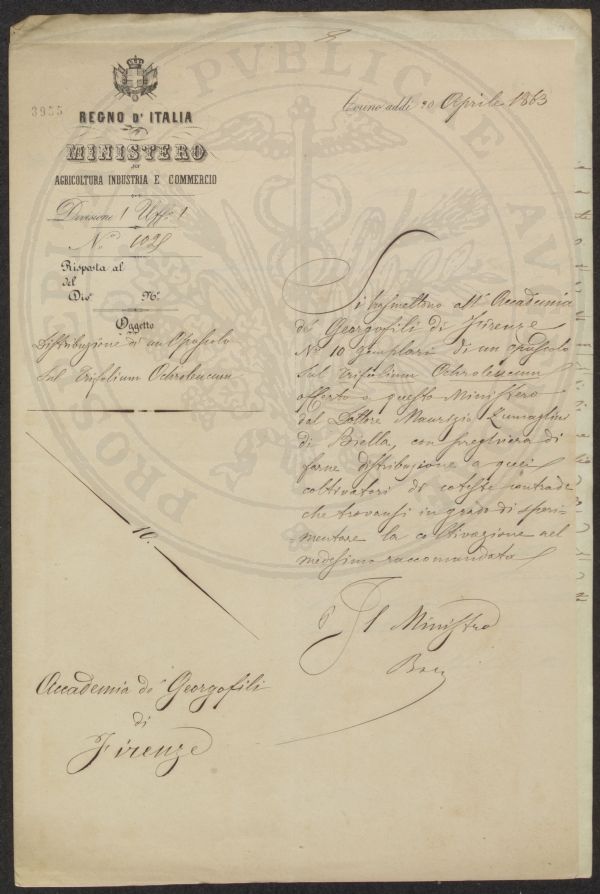 3955
REGNO D'ITALIA
MINISTERO
per
AGRICOLTURA INDUSTRIA E COMMERCIO
Divisione 1 Uff.º 1
N.º
Risposta al
del
Div.º N.º
Oggetto
Distribuzione di un Opuscolo
sul Trifolium Ochroleucum
10.
Accademia de' Georgofili
di
Firenze
Torino addì 20 Aprile 1863
Si trasmettono all' Accademia
de' Georgofili di Firenze
Nº 10 esemplari di un opuscolo
sul Trifolium Ochroleucum
offerto a questo Ministero
dal Dottore Maurizio Zumaglini
di Biella, con preghiera di
farne distribuzione a quei
coltivatori di coteste contrade
che trovansi in grado di speri-
-mentare la coltivazione del
medesimo raccomandata
Il Ministro
PRO REI PVBLICAE AVG